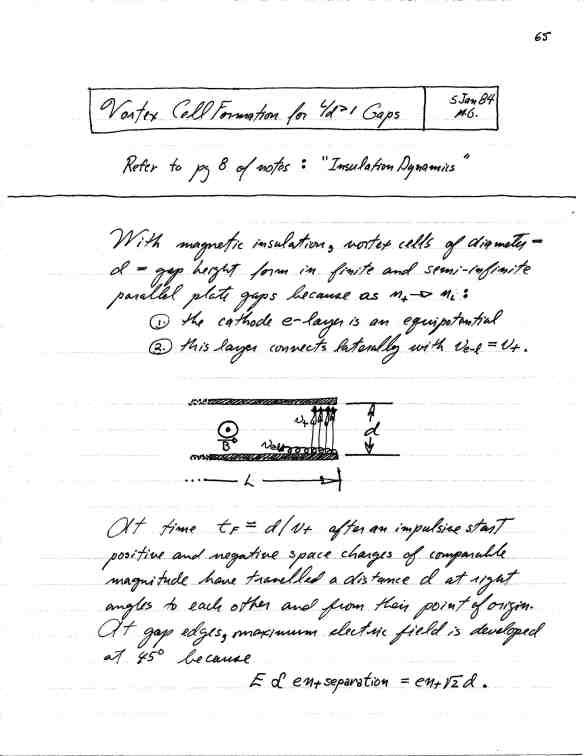 65
Vortex Cell Formation for L/d>1 Gaps
5 Jan 84
M.G.
Refer to pg 8 of notes : "Insulation Dynamics"
With magnetic insulation, vortex cells of diameter =
d = gap height form in finite and semi-infinite
parallel plate gaps because as n₊ → n₋ :
① the cathode e-layer is an equipotential
② this layer connects laterally with v_e-l = v₊.
v₊
d
B
v_e-l
L
At time t_F = d/v₊ after an impulsive start
positive and negative space charges of comparable
magnitude have travelled a distance d at right
angles to each other and from their point of origin.
At gap edges, maximum electric field is developed
at 45° because
E ∝ en₊ separation = en₊√2 d .